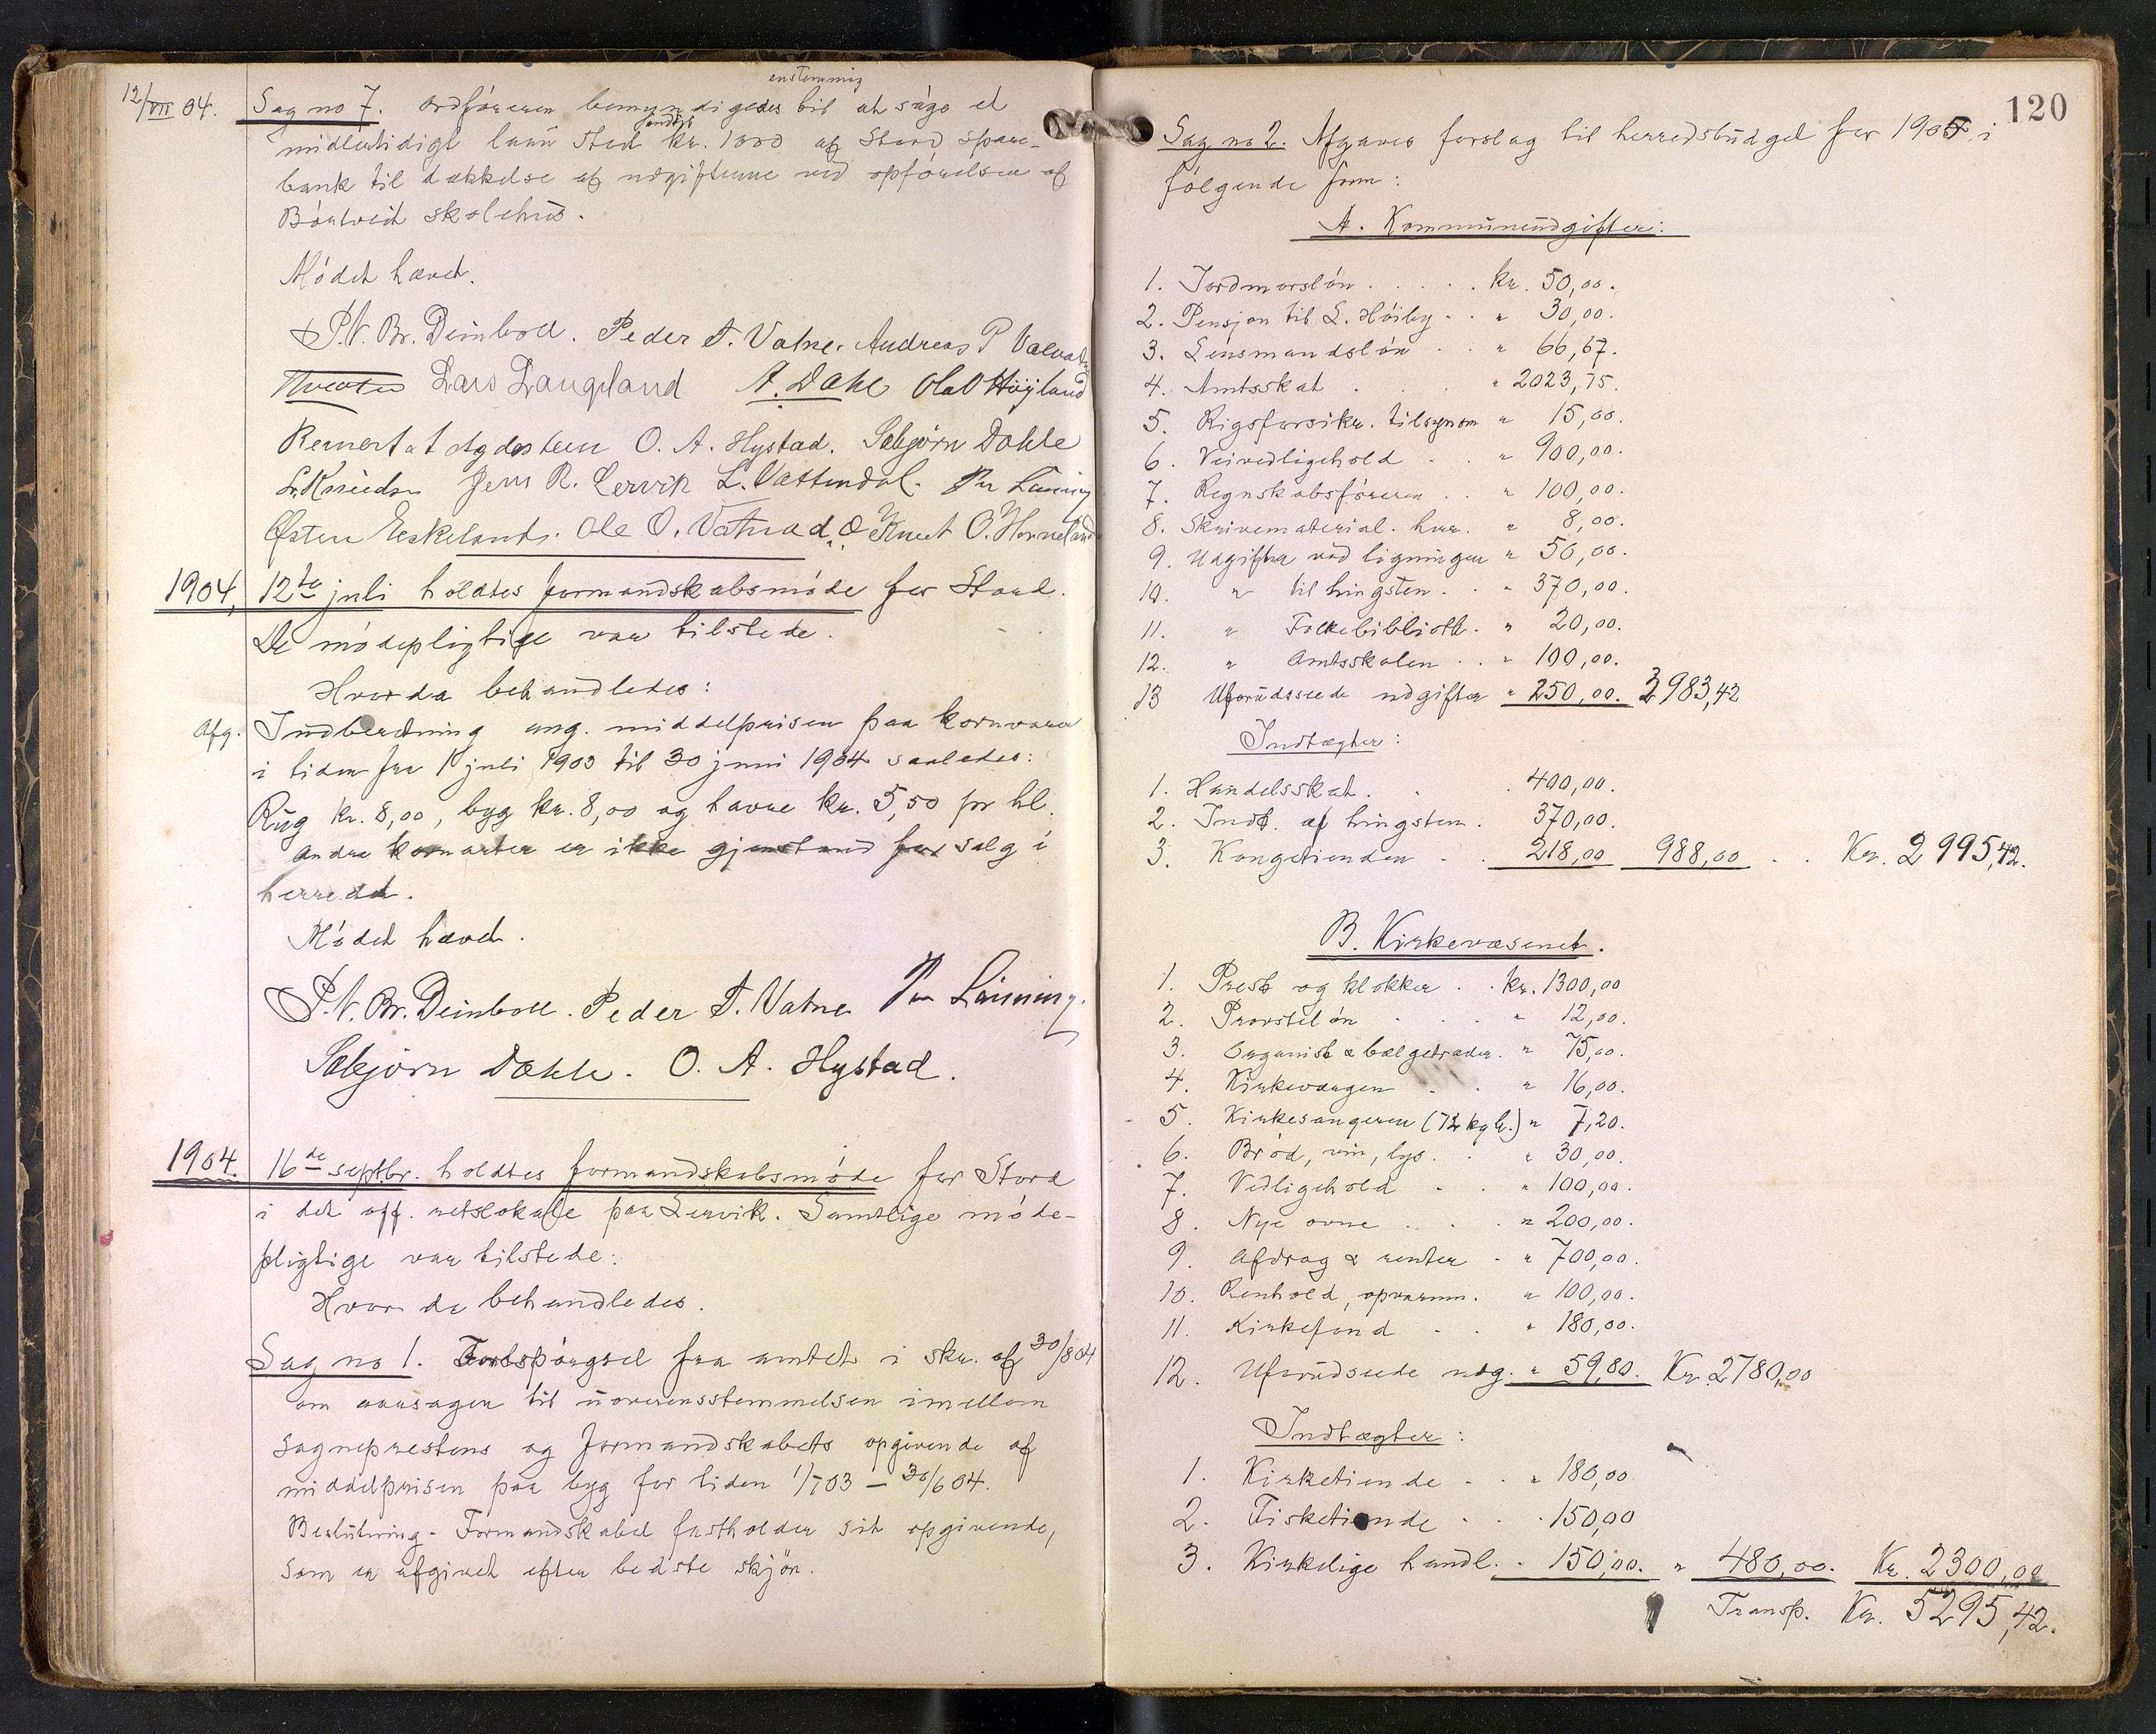 enstemmig
12/VII 04. Sag no 7. Ordføreren bemyndigedes til at søge et
midlertidigt laan stort indtil kr. 1000 af Stord spare-
bank til dækkelse af udgifterne ved opførelsen af
Børtveit skolehus.
Mødet hævet.
P.N. Br. Deinboll. Peder T. Vatne. Andreas P Valvatne
Lars Langeland A. Dahl Ola O Høyland
Bernert at Agdesteen O. A. Hystad. Sæbjørn Dahle
L. Knudsen Jens R. Lervik L. Vattendal. Per Lønning
Østen Eskeland. Ole O. Vatna d.e. Knut O. Horneland
1904, 12te juli holdtes formandskabsmøde for Stord.
De mødepligtige var tilstede.
Hvor da behandledes:
Afg. Indberetning ang. middelprisen paa kornvarer
i tiden fra 1 juli 1903 til 30 juni 1904 saaledes:
Rug kr. 8,00, byg kr. 8,00 og havre kr. 5,50 pr hl.
Andre kornarter er ikke gjenstand for salg i
herredet.
Mødet hævet.
P.N. Br. Deinboll. Peder T. Vatne Per Lønning.
Sæbjørn Dahle. O. A. Hystad.
1904. 16de septbr. holdtes formandskabsmøde for Stord
i det off. retslokale paa Lervik. Samtlige møde-
pligtige var tilstede:
Hvor da behandledes.
Sag no 1. Forespørgsel fra amtet i skr. af 30/8 04
om aarsagen til uoverensstemmelsen imellem
sogneprestens og formandskabets opgivende af
middelprisen paa byg for tiden 1/7 03 – 30/6 04.
Beslutning. Formandskabet fastholder sit opgivende,
som er afgivet efter bedste skjön.
120
Sag no 2. Afgaves forslag til herredsbudget for 1905 i
følgende form:
A. Kommuneudgifter:
1. Jordmorsløn . . . . . kr. 50,00.
2. Pensjon til L. Høiby . . " 30,00.
3. Lensmandsløn . . " 66,67.
4. Amtsskat . . . " 2023,75.
5. Rigsforsikr. tilsynsm " 15,00.
6. Veivedligehold . . " 900,00.
7. Regnskabsføreren . . " 100,00.
8. Skrivematerial. herr. " 8,00.
9. Udgifter ved ligningen " 50,00.
10. " til hingsten . . " 370,00.
11. " Folkebiblioth. " 20,00.
12. " Amtsskolen . . " 100,00.
13 Uforudseede udgifter " 250,00. 3983,42
Indtægter:
1. Handelsskat . . . 400,00.
2. Indt. af hingsten . 370,00.
3. Kongetienden . . 218,00 988,00 . . Kr. 2995,42.
B. Kirkevæsenet.
1. Prest og klokker . . kr. 1300,00
2. Provstiløn . . . " 12,00.
3. Organist & bælgetræder. " 75,00.
4. Kirkevergen . . " 16,00.
5. Kirkesangeren (72 kg b.) " 7,20.
6. Brød, vin, lys . . " 30,00.
7. Vedligehold . . " 100,00.
8. Nye ovne . . . " 200,00.
9. Afdrag & renter . " 700,00.
10. Renhold, opvarmn. " 100,00.
11. Kirkefond . . " 180,00.
12. Uforudseede udg. " 59,80. Kr. 2780,00
Indtægter:
1. Kirketiende . . " 180,00
2. Fisketiende . . . 150,00
3. Kirkelige handl. . 150,00. " 480,00. Kr. 2300,00
Transp. Kr. 5295,42.